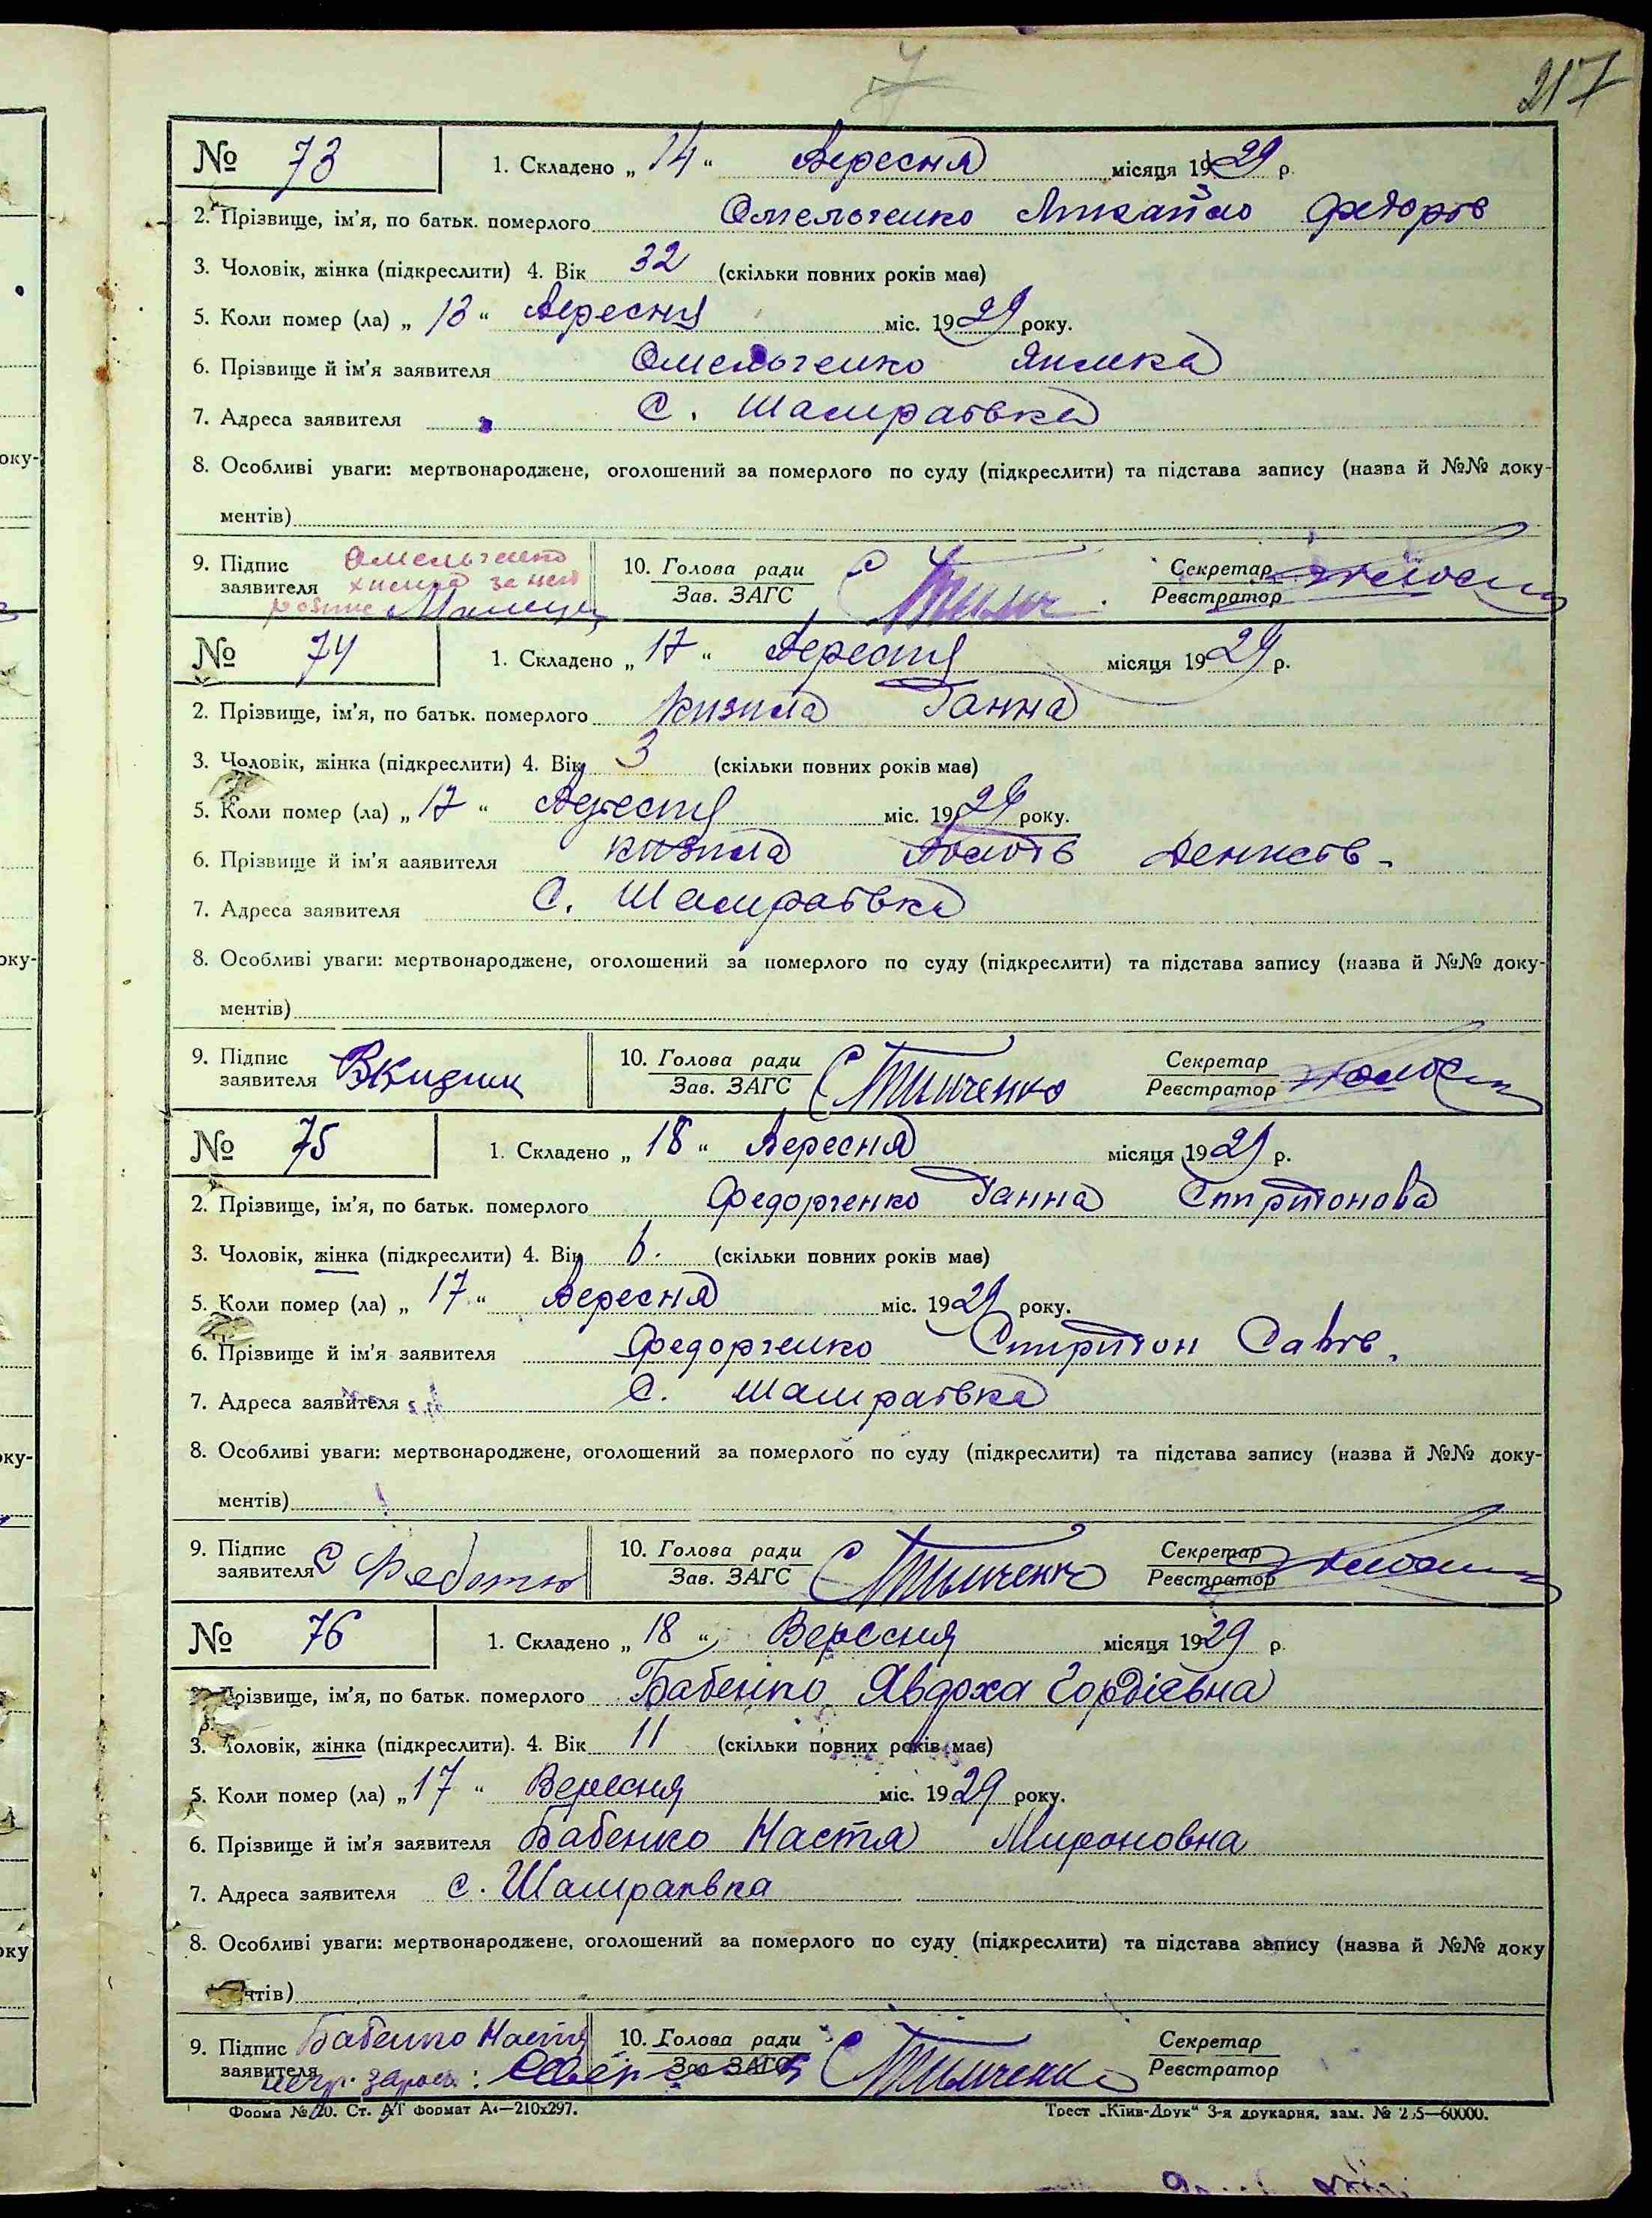 217
№ 73 1. Складено „ 14 “ Вересня місяця 1929 р.
2. Прізвище, ім'я, по батьк. померлого Омельченко Михайло Федорів
3. Чоловік, жінка (підкреслити) 4. Вік 32 (скільки повних років має)
5. Коли помер (ла) „ 13 “ Вересня міс. 1929 року.
6. Прізвище й ім'я заявителя Омельченко
7. Адреса заявителя С. Шамраївка
8. Особливі уваги: мертвонароджене, оголошений за померлого по суду (підкреслити) та підстава запису (назва й №№ доку-
ментів)
9. Підпис Омельченко 10. Голова ради Секретар
заявителя за неї Зав. ЗАГС Реєстратор
№ 74 1. Складено „ 17 “ Вересня місяця 1929 р.
2. Прізвище, ім'я, по батьк. померлого Кизима Ганна
3. Чоловік, жінка (підкреслити) 4. Вік 3 (скільки повних років має)
5. Коли помер (ла) „ 17 “ Вересня міс. 1929 року.
6. Прізвище й ім'я заявителя Кизима Денисів
7. Адреса заявителя С. Шамраївка
8. Особливі уваги: мертвонароджене, оголошений за померлого по суду (підкреслити) та підстава запису (назва й №№ доку-
ментів)
9. Підпис 10. Голова ради С Тимченко Секретар
заявителя Зав. ЗАГС Реєстратор
№ 75 1. Складено „ 18 “ Вересня місяця 1929 р.
2. Прізвище, ім'я, по батьк. померлого Федорченко Ганна Спиридонова
3. Чоловік, жінка (підкреслити) 4. Вік 6. (скільки повних років має)
5. Коли помер (ла) „ 17 “ Вересня міс. 1929 року.
6. Прізвище й ім'я заявителя Федорченко Спиридон Савів.
7. Адреса заявителя С. Шамраївка
8. Особливі уваги: мертвонароджене, оголошений за померлого по суду (підкреслити) та підстава запису (назва й №№ доку-
ментів)
9. Підпис 10. Голова ради С Тимченко Секретар
заявителя Зав. ЗАГС Реєстратор
№ 76 1. Складено „ 18 “ Вересня місяця 1929 р.
Прізвище, ім'я, по батьк. померлого Бабенко Явдоха Гордієвна
3. Чоловік, жінка (підкреслити). 4. Вік 11 (скільки повних років має)
5. Коли помер (ла) „ 17 “ Вересня міс. 1929 року.
6. Прізвище й ім'я заявителя Бабенко Настя Мироновна
7. Адреса заявителя с. Шамраївка
8. Особливі уваги: мертвонароджене, оголошений за померлого по суду (підкреслити) та підстава запису (назва й №№ доку
ментів)
9. Підпис Бабенко Настя 10. Голова ради С Тимченко Секретар
заявителя Зав. ЗАГС Реєстратор
Форма № 20. Ст. АТ формат А4—210х297. Трест „Київ-Друк“ 3-я друкарня, зам. № 60000.